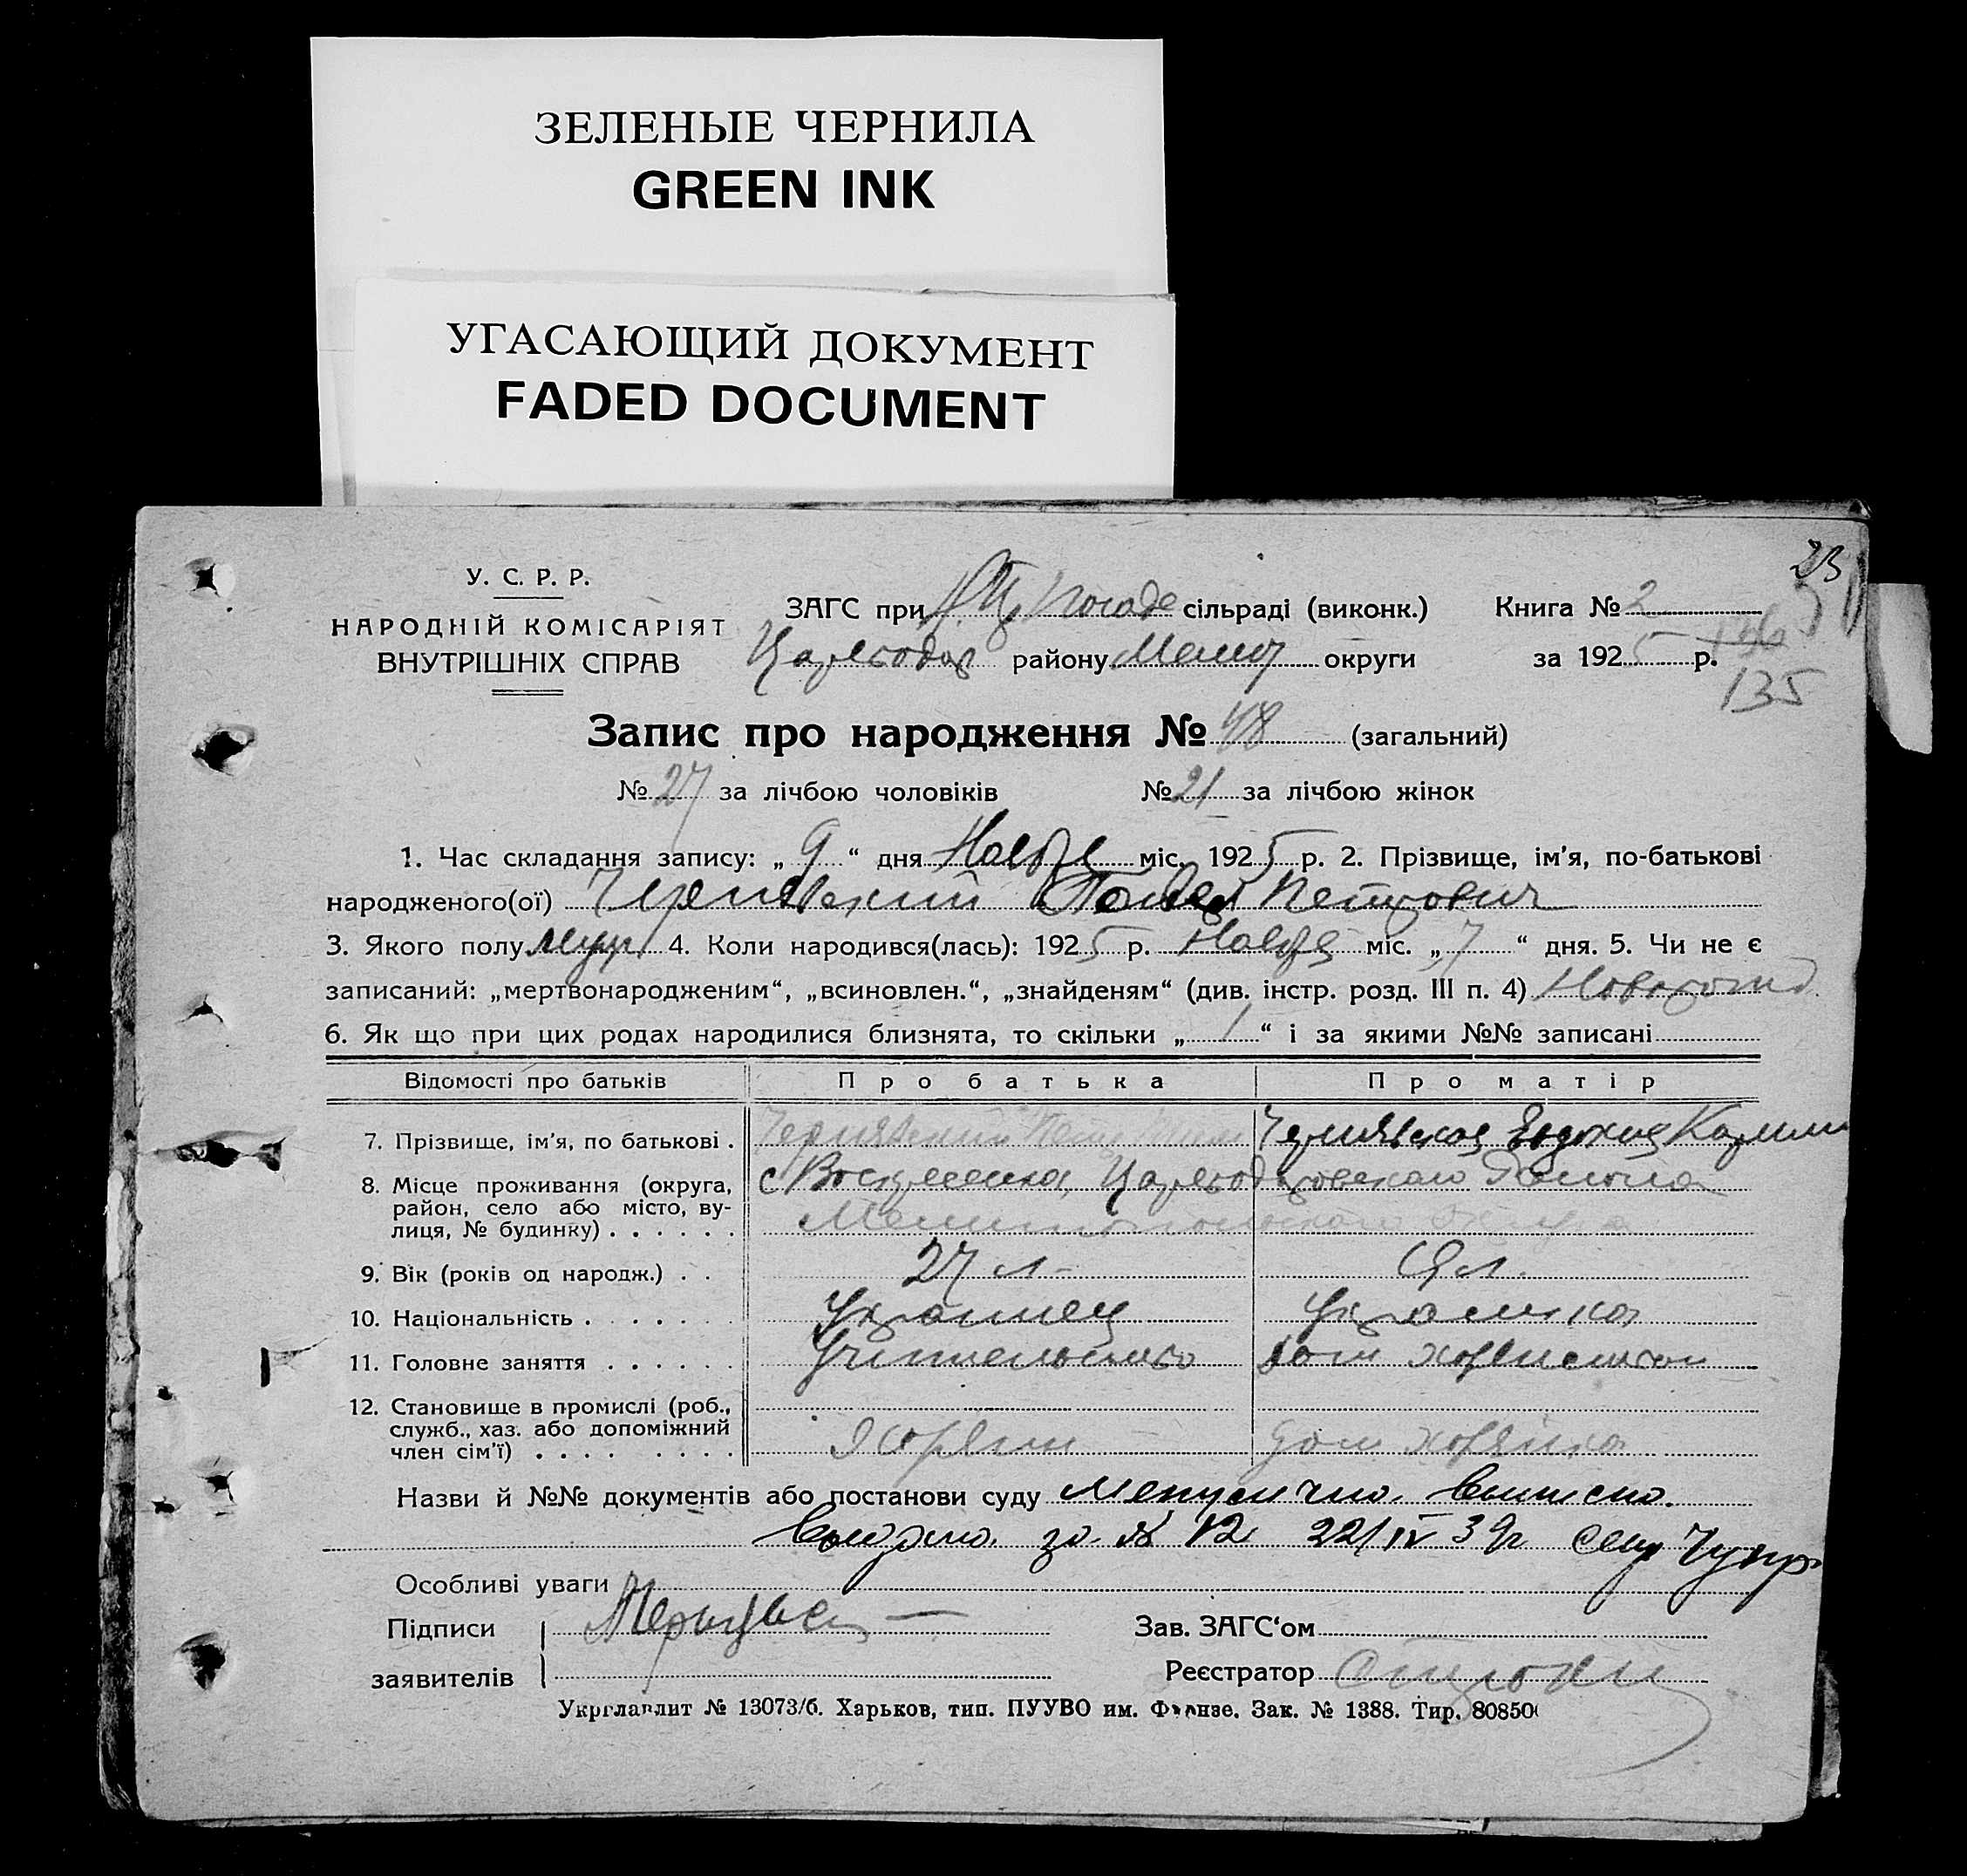 ЗЕЛЕНЫЕ ЧЕРНИЛА
GREEN INK
УГАСАЮЩИЙ ДОКУМЕНТ
FADED DOCUMENT
23
У. С. Р. Р.
НАРОДНІЙ КОМІСАРІЯТ
ВНУТРІШНІХ СПРАВ
ЗАГС при сільраді (виконк.)
Книга № 2
району Мелит округи
за 1925 р.
135
Запис про народження № 48 (загальний)
№ 27 за лічбою чоловіків № 21 за лічбою жінок
1. Час складання запису: „ 9 “ дня Ноября міс. 1925 р. 2. Прізвище, ім’я, по-батькові
народженого(ої) Чернявский Павел Петрович
3. Якого полу муж 4. Коли народився(лась): 1925 р. Ноября міс. „ 7 “ дня. 5. Чи не є
записаний: „мертвонародженим“, „всиновлен.“, „знайденям“ (див. інстр. розд. III п. 4) Новорожд
6. Як що при цих родах народилися близнята, то скільки „ 1 “ і за якими №№ записані
Відомості про батьків Про батька Про матір
7. Прізвище, ім’я, по батькові . Чернявский Чернявская Евдокия
8. Місце проживання (округа, с Воскресенка, Района
район, село або місто, ву-
лиця, № будинку) . . . . . . Мелитопольского Округа
9. Вік (років од народж.) . . 27 л. л.
10. Національність . . . . . . . Украинец Украинка
11. Головне заняття . . . . . . Учительство дом хозяйство
12. Становище в промислі (роб.,
служб., хаз. або допоміжний
член сім’ї) . . . . . . . . . Хозяин дом хозяйка
Назви й №№ документів або постанови суду выписка.
Выдано за № 12 22/IV 39г
Особливі уваги
Підписи
Зав. ЗАГС‘ом
заявителів
Реєстратор
Укрглавлит № 13073/б. Харьков, тип. ПУУВО им. Фрунзе. Зак. № 1388. Тир. 80850